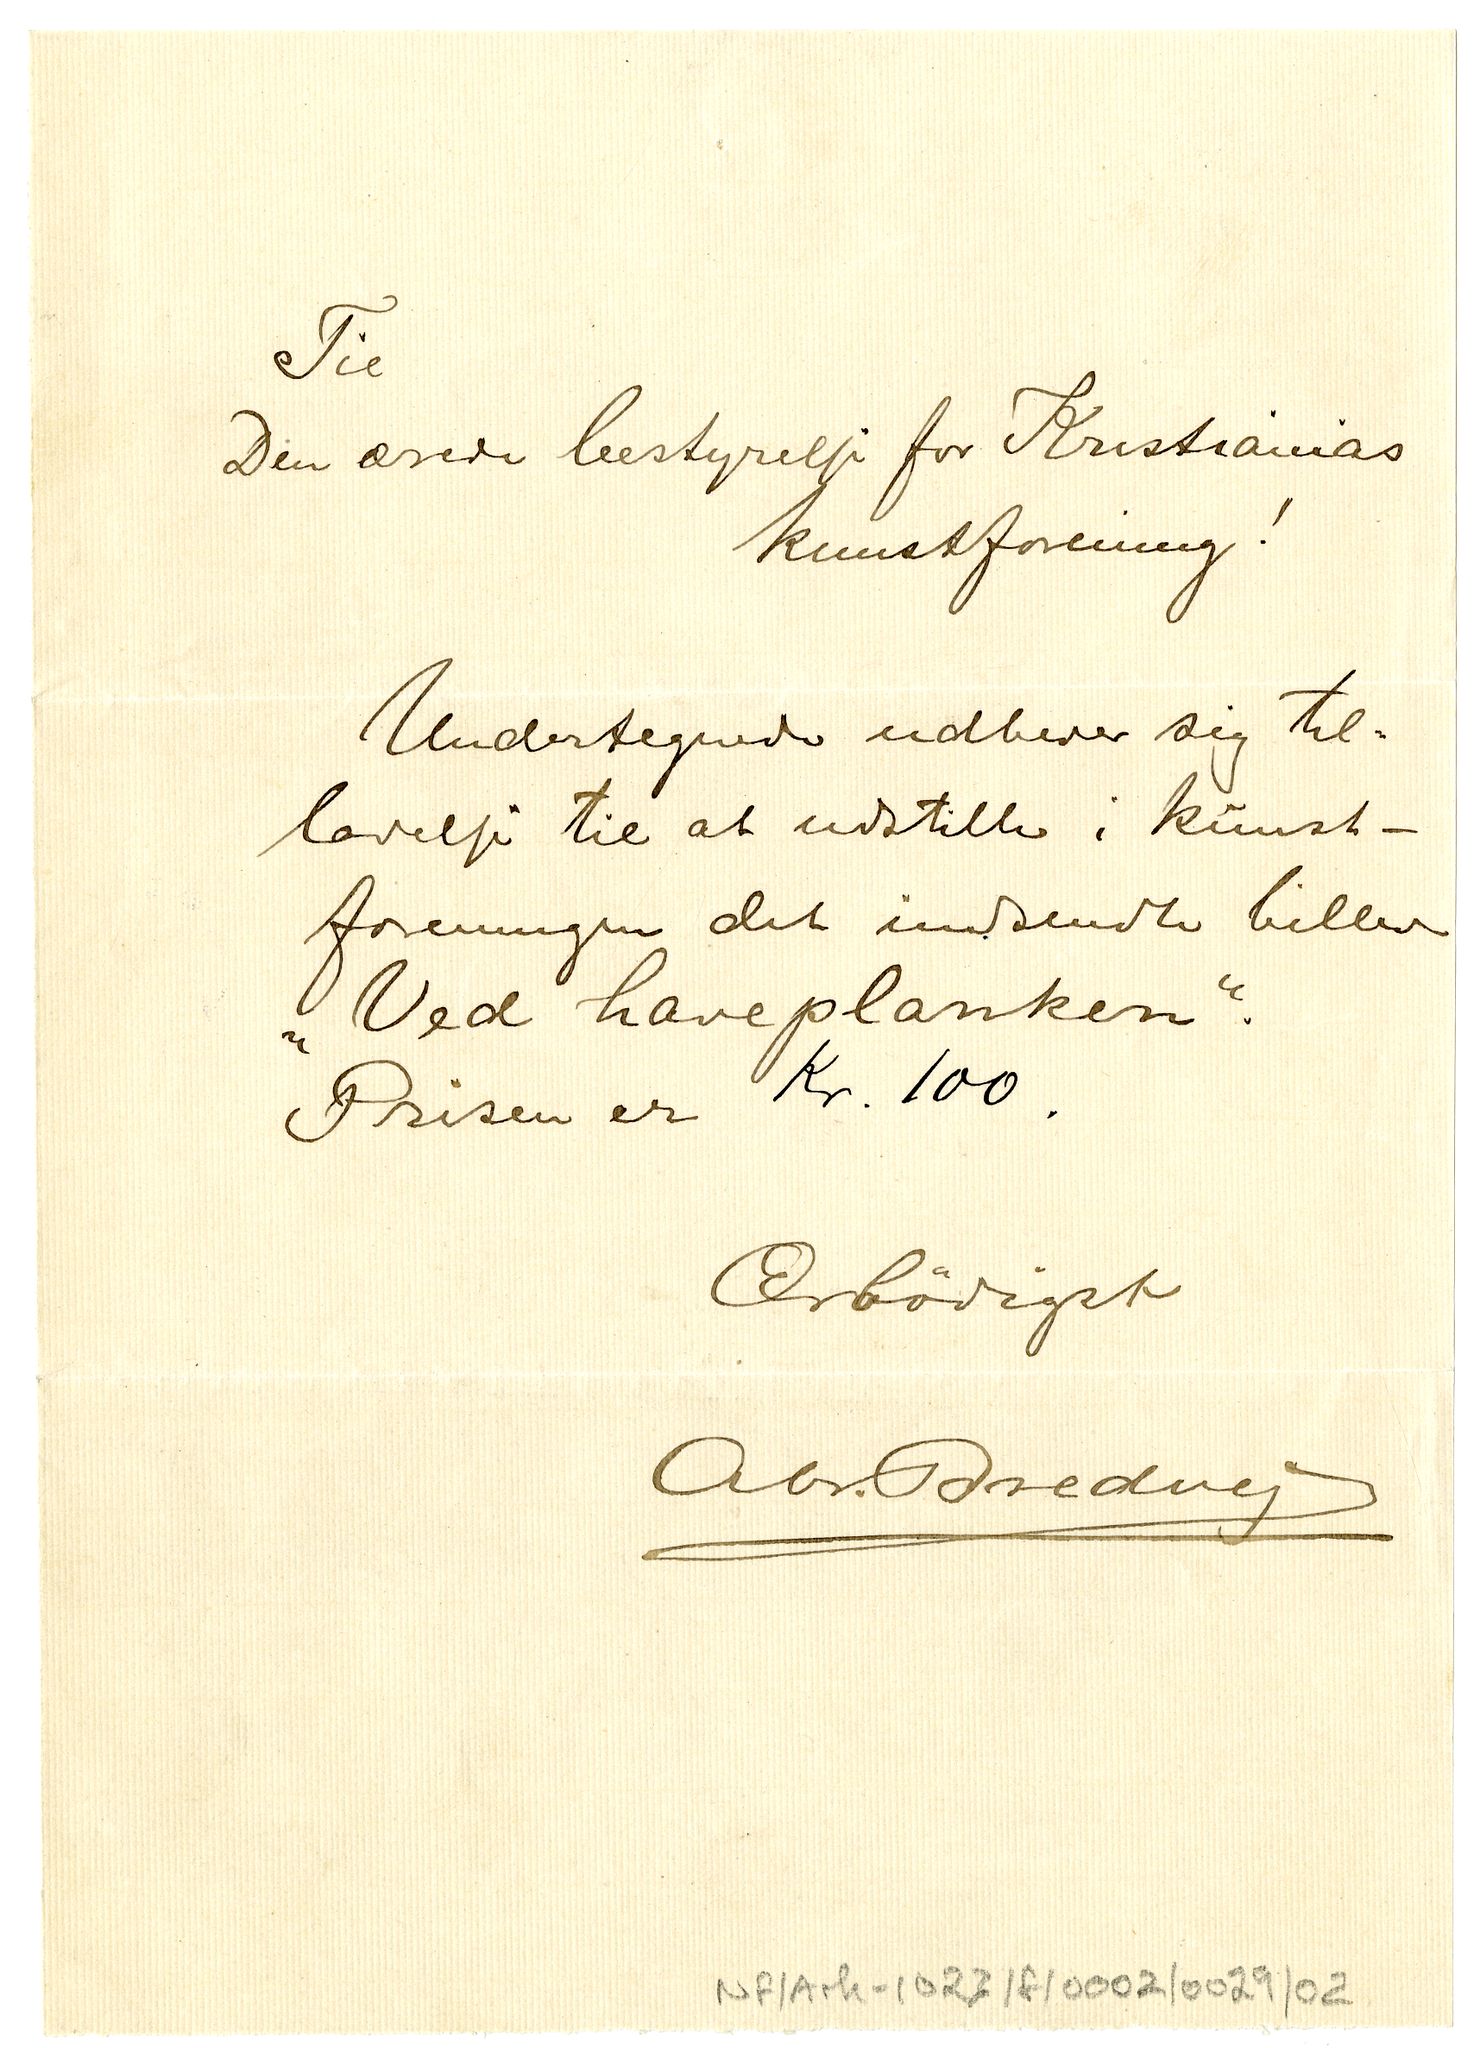 Til
Den ærede bestyrelse for Kristianias
kunstforening!
Undertegnede udbeder sig til-
ladelse til at udstille i kunst-
foreningen det indsendte billede
„Ved haveplanken“.
Prisen er Kr. 100.
Ærbödigst
Abr. Bredvej
NF/Ark-1023/F/0002/0029/02